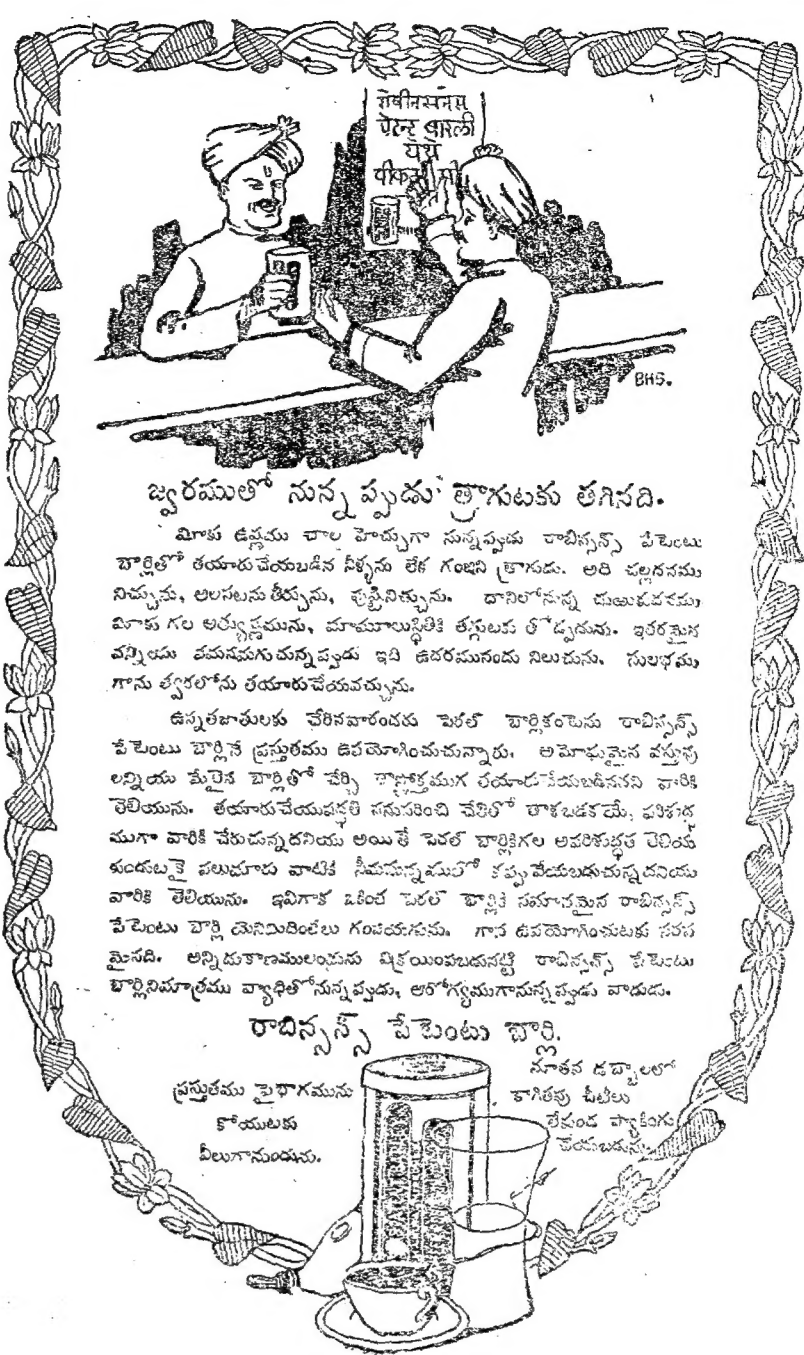 रोबीनसनस
पेटन्ट बारली
येथे
BHS.
జ్వరముతో నున్నప్పుడు త్రాగుటకు తగినది.
మీకు ఉష్ణము చాల హెచ్చుగా నున్నప్పుడు రాబిన్సన్స్ పేటెంటు
బార్లితో తయారుచేయబడిన నీళ్ళను లేక గంజిని త్రాగుడు. అది చల్లదనము
నిచ్చును, అలసటను తీర్చును, పుష్టినిచ్చును. దానిలోనున్న
మీకు గల అత్యుష్ణమును, మామూలుస్థితికి తగ్గుటకు తోడ్పడును. ఇతరమైన
వన్నియు వమనమగుచున్నప్పుడు ఇది ఉదరమునందు నిలుచును. సులభము
గాను త్వరలోను తయారుచేయవచ్చును.
ఉన్నతజాతులకు చేరినవారందరు పెరల్ బార్లికంటెను రాబిన్సన్స్
పేటెంటు బార్లినే ప్రస్తుతము ఉపయోగించుచున్నారు. అమోఘమైన వస్తువు
లన్నియు మేలైన బార్లితో చేర్చి శాస్త్రోక్తముగ తయారుచేయబడినదని వారికి
తెలియును. తయారుచేయుపద్ధతి ననుసరించి చేతితో తాకబడకయే, పరిశుద్ధ
ముగా వారికి చేరుచున్నదనియు అయితే పెరల్ బార్లికిగల అపరిశుద్ధత తెలియ
కుండుటకై పలుమారు వాటికి సీమసున్నముతో కప్పువేయబడుచున్నదనియు
వారికి తెలియును. ఇవిగాక ఒకింత పెరల్ బార్లికి సమానమైన రాబిన్సన్స్
పేటెంటు బార్లి యెనిమిదింతలు గంజియగును. గాన ఉపయోగించుటకు సరస
మైనది. అన్నిదుకాణములందును విక్రయింపబడునట్టి రాబిన్సన్స్ పేటెంటు
బార్లినిమాత్రము వ్యాధితోనున్నప్పుడు, ఆరోగ్యముగానున్నప్పుడు వాడుడు.
రాబిన్సన్స్ పేటెంటు బార్లి.
ప్రస్తుతము పైభాగమును
కోయుటకు
వీలుగానుండును.
నూతన డబ్బాలలో
కాగితపు చీటీలు
లేకుండ ప్యాకింగు
చేయబడును.